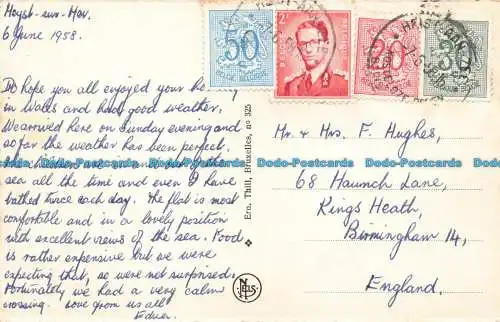 Heyst-sur-Mer.
6 June 1958.
Do hope you all enjoyed your
in Wales and had good weather.
We arrived here on Sunday evening and
so far the weather has been perfect.
The children are in and out of the
sea all the time and even I have
bathed twice each day. The flat is most
comfortable and in a lovely position
with excellent views of the sea. Food
is rather expensive but we were
expecting that, so were not surprised.
Fortunately we had a very calm
crossing. Love from us all
Ern. Thill, Bruxelles, no 325
NELS
50
2F
20
Mr. & Mrs. F. Hughes,
68 Haunch Lane,
Kings Heath,
Birmingham 14,
England.
Dodo-Postcards
Dodo-Postcards
Dodo-Postcards
Dodo-Postcards